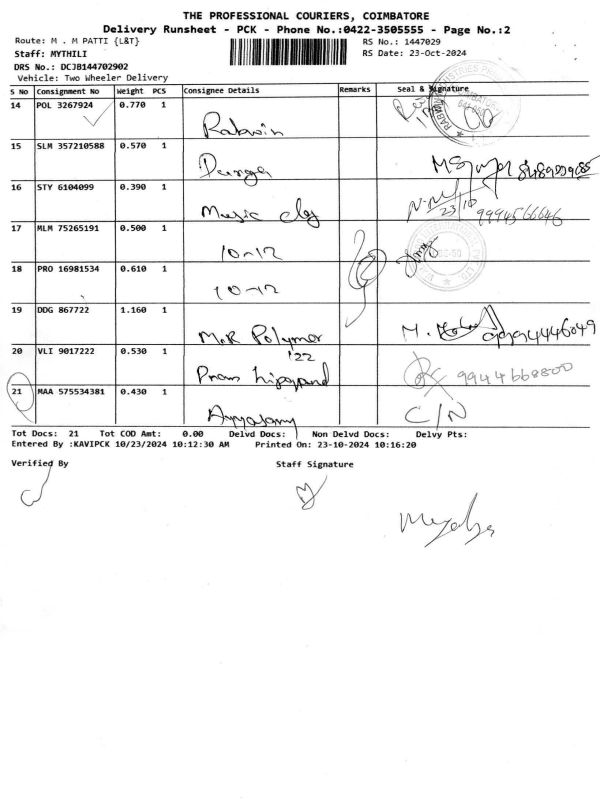 THE PROFESSIONAL COURIERS, COIMBATORE
Delivery Runsheet - PCK - Phone No.:0422-3505555 - Page No.:2
Route: M . M PATTI {L&T}
RS No.: 1447029
Staff: MYTHILI
RS Date: 23-Oct-2024
DRS No.: DCJB144702902
Vehicle: Two Wheeler Delivery
S No Consignment No Weight PCS Consignee Details Remarks Seal & Signature
14 POL 3267924 0.770 1
15 SLM 357210588 0.570 1
Durga
16 STY 6104099 0.390 1
Music
23/10
9994566646
17 MLM 75265191 0.500 1
10-12
18 PRO 16981534 0.610 1
10-12
19 DDG 867722 1.160 1
M.R Polymer
20 VLI 9017222 0.530 1
'22
9944668800
21 MAA 575534381 0.430 1
Ayyasamy C/N
Tot Docs: 21 Tot COD Amt: 0.00 Delvd Docs: Non Delvd Docs: Delvy Pts:
Entered By :KAVIPCK 10/23/2024 10:12:30 AM Printed On: 23-10-2024 10:16:20
Verified By Staff Signature